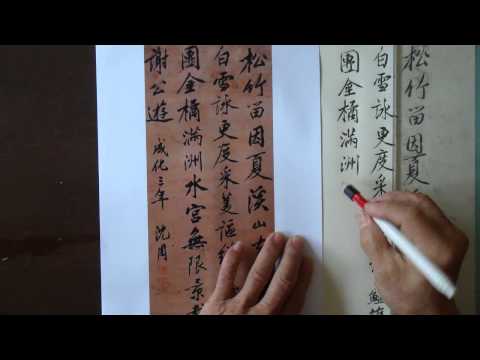 松竹留因夏
白雪詠更度采
鱸
團金橘滿洲
松竹留因夏溪山
白雪詠更度采菱謳
團金橘滿洲水宮無限景
謝公遊
成化三年 沈周